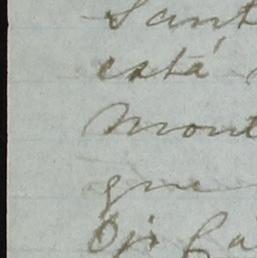 Sant
está
Mont
que